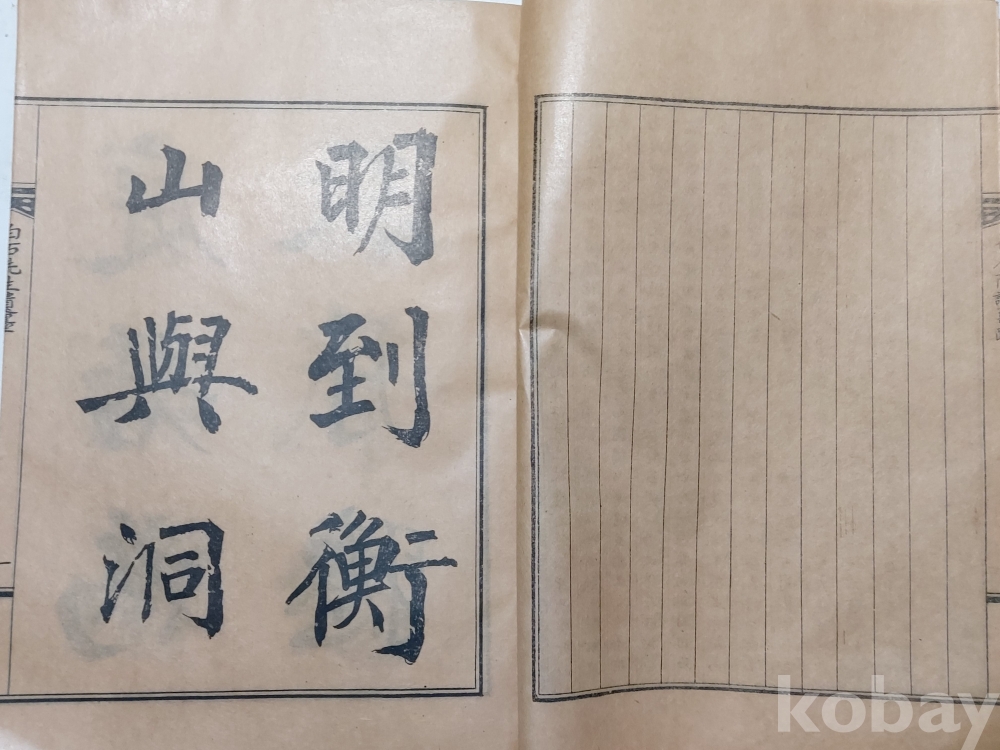 明到衡
山與洞
kobay